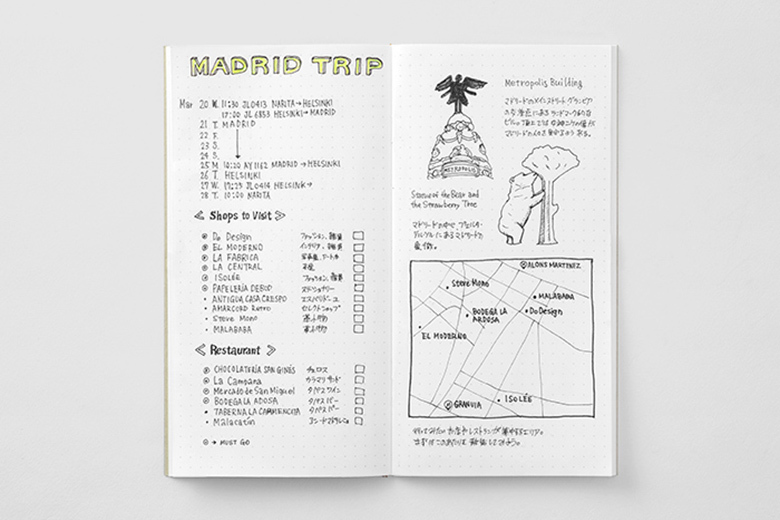 MADRID TRIP
Mar 20 W. 11:30 JL0413 NARITA→HELSINKI
17:00 JL 6853 HELSINKI→MADRID
21 T. MADRID
22 F.
23 S.
24 S.
25 M 10:20 AY1162 MADRID→HELSINKI
26 T HELSINKI
27 W. 17:25 JL0414 HELSINK→
28 T. 10:00 NARITA
Shops to Visit
Do Design ファッション、雑貨
EL MODERNO インテリア、雑貨
LA FABRICA
LA CENTRAL
ISOLÉE ファッション、雑貨
PAPELERÍA DEBOD ステーショナリー
ANTIGUA CASA CRESPO エスパドリーユ
AMARCORD Retro セレクトショップ
Steve Mono 革小物
MALABABA 革小物
Restaurant
CHOCOLATERÍA SAN GINÉS チュロス
La Campana カラマリサンド
Mercado de San Miguel タパス ワイン
BODEGA LA ADOSA タパス バー
TABERNA LA CARMENCITA タパス バー
Malacatín
→ MUST GO
Metropolis Building
マドリードのメインストリート グランビア
Statue of the Bear and
the Strawberry Tree
METROPOLIS
ALONS MARTINEZ
Steve Mono
MALABABA
BODEGA LA
ARDOSA
Do Design
EL MODERNO
ISOLÉE
GRANVIA